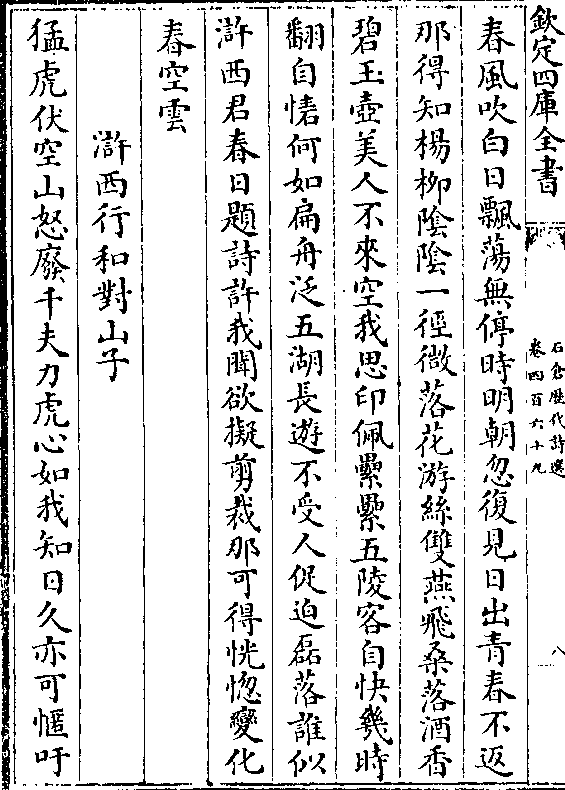 欽定四庫全書
石倉歷代詩選
卷四百六十九
八
春風吹白日飄蕩無停時明朝忽復見日出青春不返
那得知楊柳陰陰一徑微落花游絲雙燕飛桑落酒香
碧玉壺美人不來空我思印佩纍纍五陵客自快幾時
翻自悽何如扁舟泛五湖長遊不受人促迫磊落誰似
滸西君春日題詩許我聞欲擬剪裁那可得恍惚變化
春空雲
滸西行和對山子
猛虎伏空山怒廢千夫力虎心如我知日久亦可慪吁